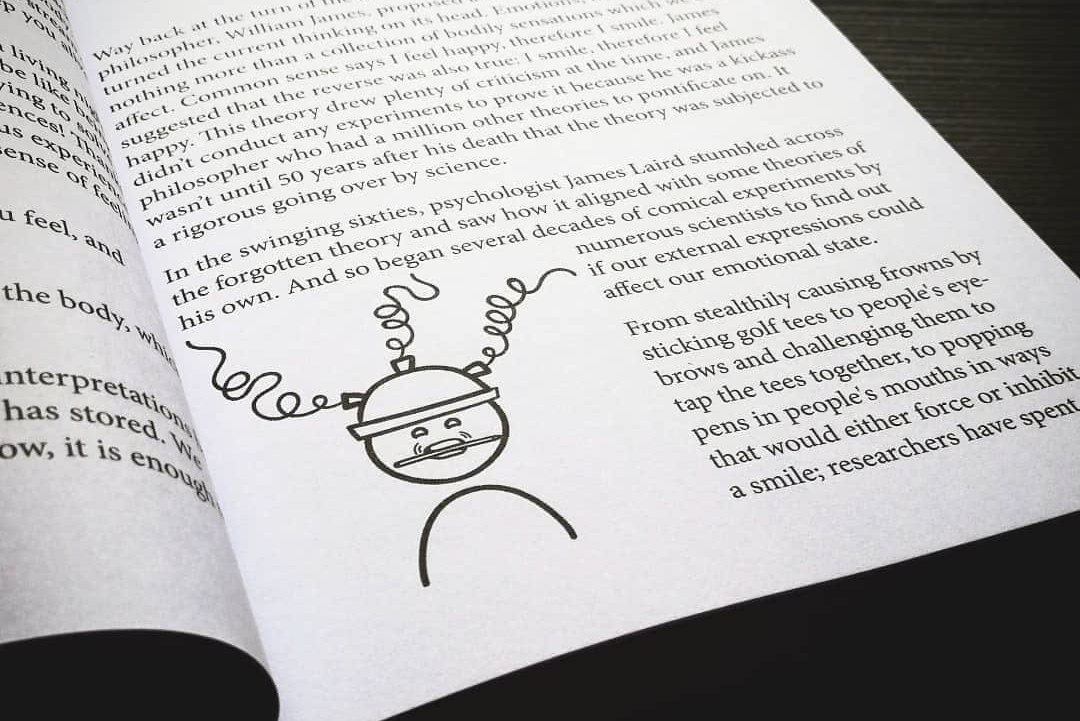 p you
living
be like
ying to
ences!
us experien
sense of feel
u feel, and
the body, whi
nterpretations
has stored. We
ow, it is enough
Way back at the turn of the
philosopher, William James, proposed
turned the current thinking on its head. Emotions,
nothing more than a collection of bodily sensations which we
affect. Common sense says I feel happy, therefore I smile. James
suggested that the reverse was also true: I smile, therefore I feel
happy. This theory drew plenty of criticism at the time, and James
didn't conduct any experiments to prove it because he was a kickass
philosopher who had a million other theories to pontificate on. It
wasn't until 50 years after his death that the theory was subjected to
a rigorous going over by science.
In the swinging sixties, psychologist James Laird stumbled across
the forgotten theory and saw how it aligned with some theories of
his own. And so began several decades of comical experiments by
numerous scientists to find out
if our external expressions could
affect our emotional state.
From stealthily causing frowns by
sticking golf tees to people's eye-
brows and challenging them to
tap the tees together, to popping
pens in people's mouths in ways
that would either force or inhibit
a smile; researchers have spent